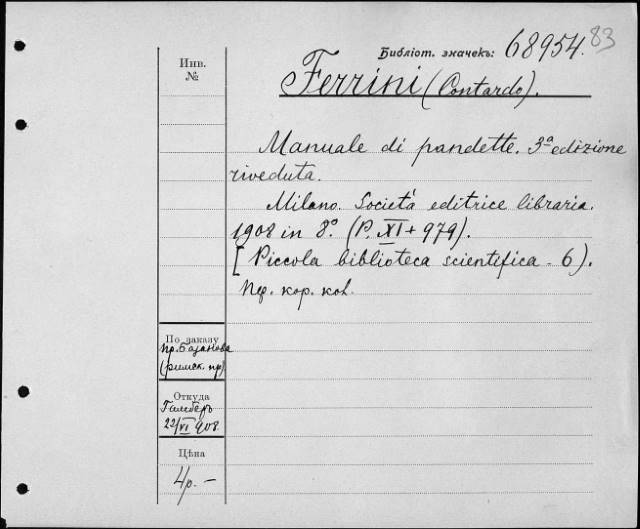 Библіот. значекъ: 68954. 83
Инв.
№
Ferrini (Contardo).
Manuale di pandette. 3ª edizione
riveduta.
Milano. Società editrice libraria.
1908 in 8º. (P. XI + 979).
[Piccola biblioteca scientifica - 6).
кор. кож.
По заказу
пр. Базанова
(римск. пр)
Откуда
22/VI 908.
Цѣна
4р. -